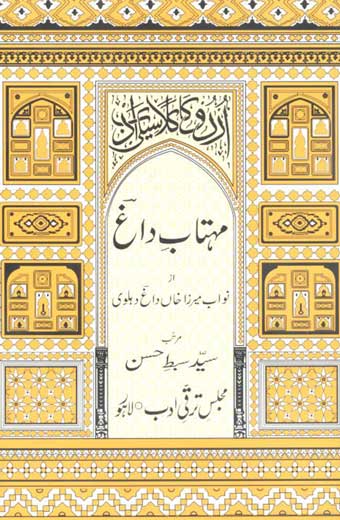 اردو کا کلاسیکی ادب
مہتابِ داغؔ
از
نواب میرزا خاں داغؔ دہلوی
مرتب
سیّد سبط حسن
مجلس ترقی ادب ○ لاہور